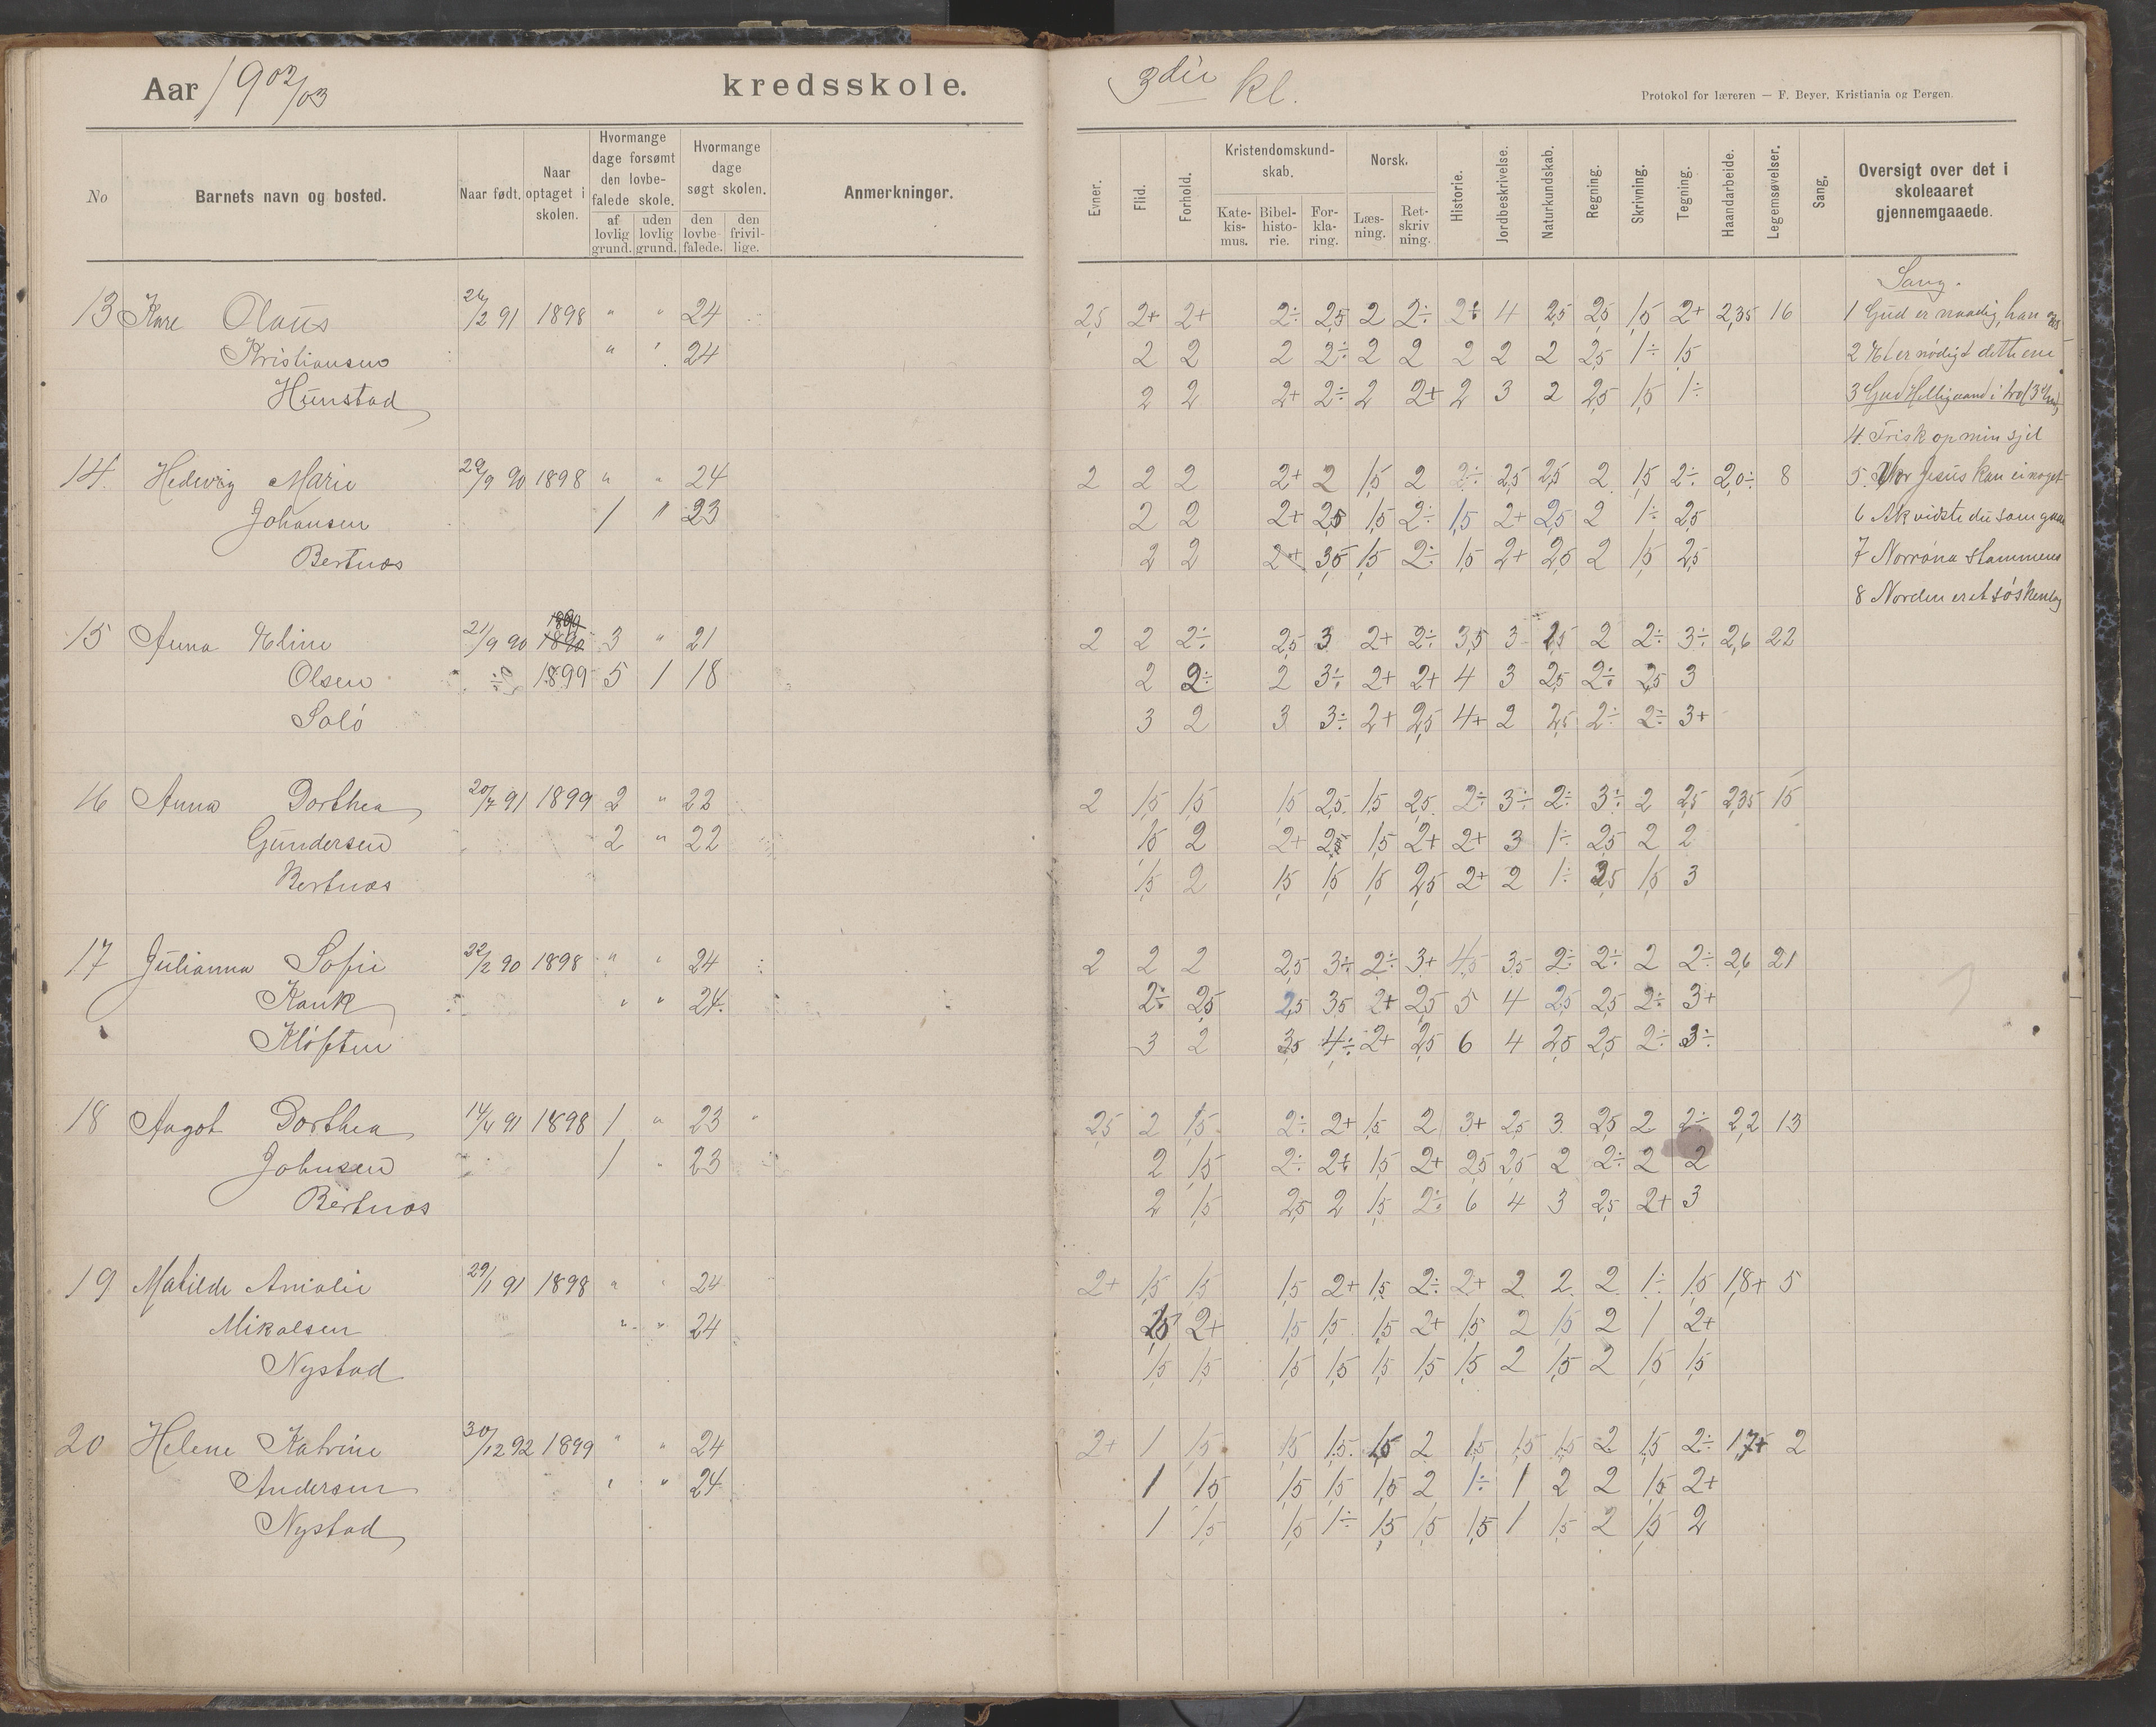 Aar 1902/03 kredsskole. 3die kl. Protokol for læreren — F. Beyer, Kristiania og Bergen.
No Barnets navn og bosted. Naar født. Naar optaget i skolen. Hvormange dage forsømt den lovbefalede skole. af lovlig grund. uden lovlig grund. Hvormange dage søgt skolen. den lovbefalede. den frivillige. Anmerkninger. Evner. Flid. Forhold. Kristendomskundskab. Katekismus. Bibelhistorie. Forklaring. Norsk. Læsning. Retskrivning. Historie. Jordbeskrivelse. Naturkundskab. Regning. Skrivning. Tegning. Haandarbeide. Legemsøvelser. Sang. Oversigt over det i skoleaaret gjennemgaaede.
Sang.
13 Kare Olaus 26/2 91 1898 " " 24 2,5 2+ 2+ 2÷ 2,5 2 2÷ 2÷ 4 2,5 2,5 1,5 2+ 2,35 16 1 Gud er naadig, han
Kristiansen " " 24 2 2 2 2÷ 2 2 2 2 2 2,5 1÷ 1,5 2 Et er nødigt dette ene
Hunstad 2 2 2+ 2÷ 2 2+ 2 3 2 2,5 1,5 1÷ 3 Gud Helligaand i tro
4. Frisk op min sjel
14. Hedevig Marie 29/9 90 1898 " " 24 2 2 2 2+ 2 1,5 2 2÷ 2,5 2,5 2 1,5 2÷ 2,0÷ 8 5. Hvor Jesus kan ei noget
Johansen 1 " 23 2 2 2+ 2,5 1,5 2÷ 1,5 2+ 2,5 2 1÷ 2,5 6 Ak vidste du som gaar
Bertnæs 2 2 2+ 3,5 1,5 2÷ 1,5 2+ 2,5 2 1,5 2,5 7 Norrøna stammens
8 Norden er et søskenlag
15 Anna Eline 21/9 90 3 " 21 2 2 2÷ 2,5 3 2+ 2÷ 3,5 3 2,5 2 2÷ 3÷ 2,6 22
Olsen 1899 5 1 18 2 2÷ 2 3÷ 2+ 2+ 4 3 2,5 2÷ 2,5 3
Solø 3 2 3 3÷ 2+ 2,5 4+ 2 2,5 2÷ 2÷ 3+
16 Anna Dorthea 20/7 91 1899 2 " 22 2 1,5 1,5 1,5 2,5 1,5 2,5 2÷ 3÷ 2÷ 3÷ 2 2,5 2,35 15
Gundersen 2 " 22 1,5 2 2+ 2,5 1,5 2+ 2+ 3 1÷ 2,5 2 2
Bertnæs 1,5 2 1,5 1,5 1,5 2,5 2+ 2 1÷ 2,5 1,5 3
17 Julianna Sofie 22/2 90 1898 " " 24 2 2 2 2,5 3÷ 2÷ 3+ 4,5 3,5 2÷ 2÷ 2 2÷ 2,6 21
Kank " " 24 2÷ 2,5 2,5 3,5 2+ 2,5 5 4 2,5 2,5 2÷ 3+
Kløften 3 2 3,5 4÷ 2+ 2,5 6 4 2,5 2,5 2÷ 3÷
18 Aagot Dorthea 14/4 91 1898 1 " 23 " 2,5 2 1,5 2÷ 2+ 1,5 2 3+ 2,5 3 2,5 2 2÷ 2,2 13
Johnsen 1 " 23 2 1,5 2÷ 2+ 1,5 2+ 2,5 2,5 2 2÷ 2 2
Bertnæs 2 1,5 2,5 2 1,5 2÷ 6 4 3 2,5 2+ 3
19 Matilde Amalie 29/1 91 1898 " " 24 2+ 1,5 1,5 1,5 2+ 1,5 2÷ 2+ 2 2 2 1÷ 1,5 1,8+ 5
Mikalsen " " 24 2,5 2+ 1,5 1,5 1,5 2+ 1,5 2 1,5 2 1 2+
Nystad 1,5 1,5 1,5 1,5 1,5 1,5 1,5 2 1,5 2 1,5 1,5
20 Helene Katrine 30/12 92 1899 " " 24 2+ 1 1,5 1,5 1,5 1,5 2 1,5 1,5 1,5 2 1,5 2÷ 1,7+ 2
Andersen " " 24 1 1,5 1,5 1,5 1,5 2 1÷ 1 2 2 1,5 2+
Nystad 1 1,5 1,5 1÷ 1,5 1,5 1,5 1 1,5 2 1,5 2